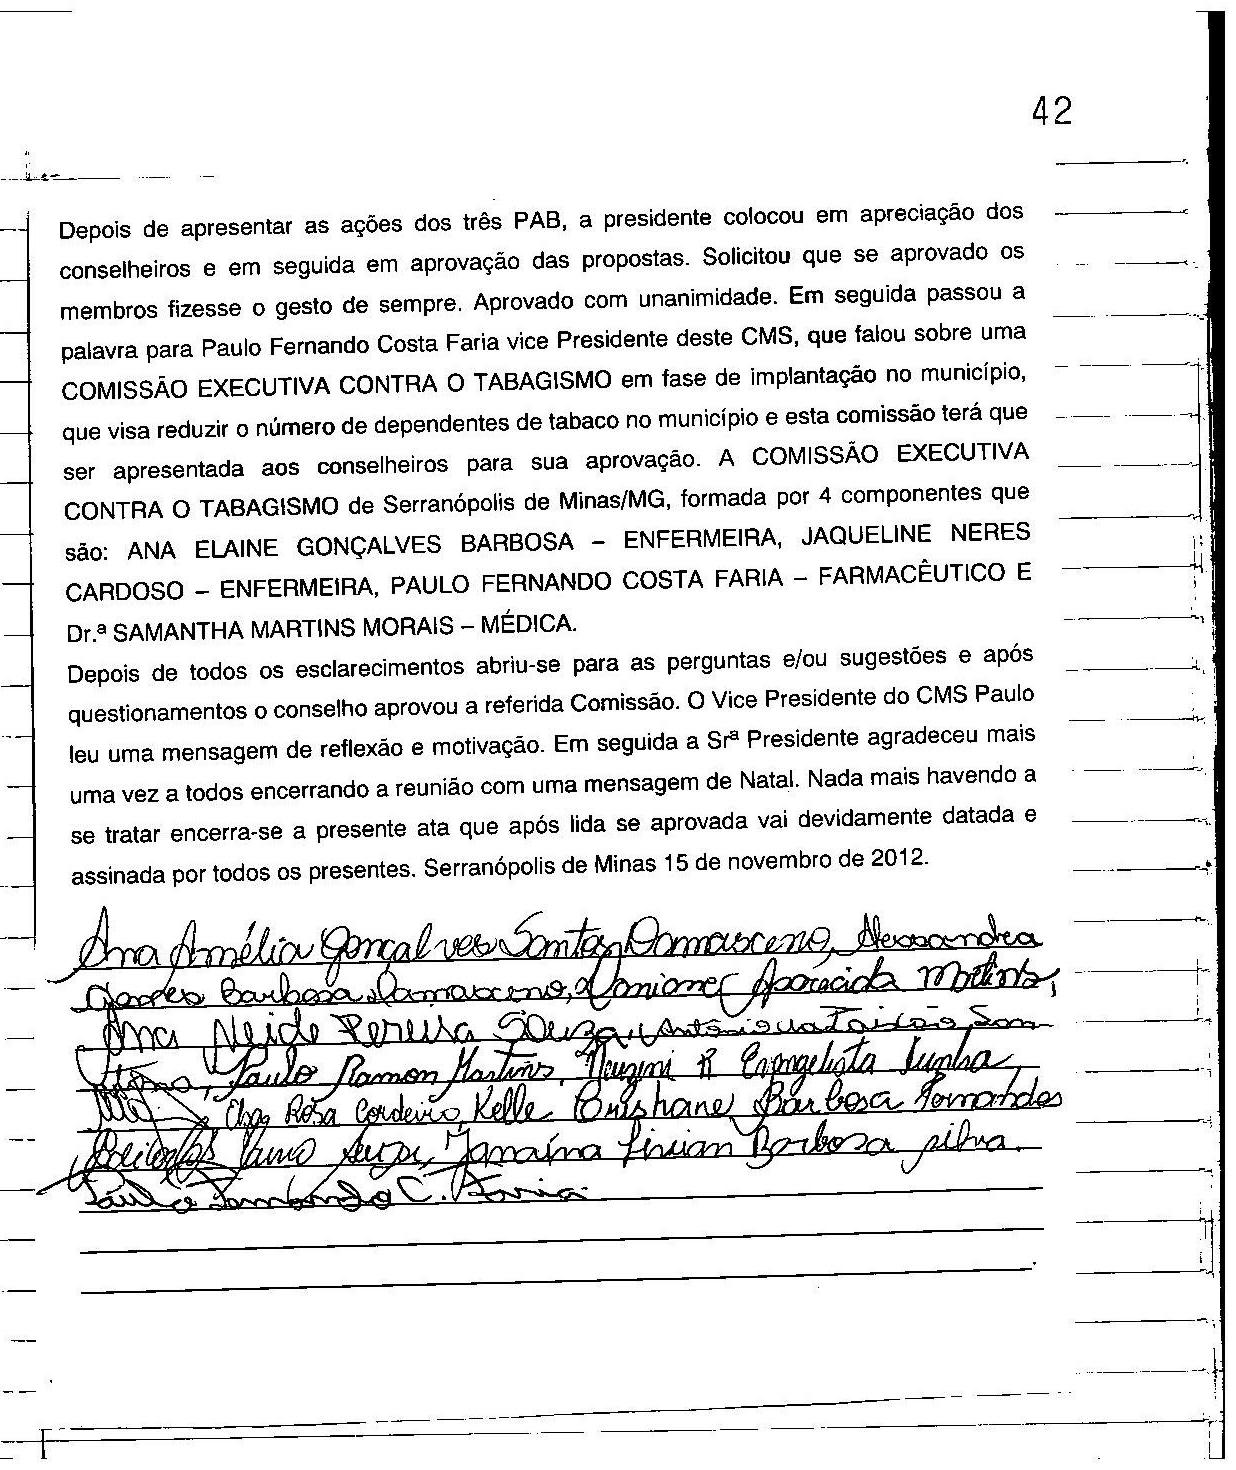 42
Depois de apresentar as ações dos três PAB, a presidente colocou em apreciação dos
conselheiros e em seguida em aprovação das propostas. Solicitou que se aprovado os
membros fizesse o gesto de sempre. Aprovado com unanimidade. Em seguida passou a
palavra para Paulo Fernando Costa Faria vice Presidente deste CMS, que falou sobre uma
COMISSÃO EXECUTIVA CONTRA O TABAGISMO em fase de implantação no município,
que visa reduzir o número de dependentes de tabaco no município e esta comissão terá que
ser apresentada aos conselheiros para sua aprovação. A COMISSÃO EXECUTIVA
CONTRA O TABAGISMO de Serranópolis de Minas/MG, formada por 4 componentes que
são: ANA ELAINE GONÇALVES BARBOSA – ENFERMEIRA, JAQUELINE NERES
CARDOSO – ENFERMEIRA, PAULO FERNANDO COSTA FARIA – FARMACÊUTICO E
Dr.ª SAMANTHA MARTINS MORAIS – MÉDICA.
Depois de todos os esclarecimentos abriu-se para as perguntas e/ou sugestões e após
questionamentos o conselho aprovou a referida Comissão. O Vice Presidente do CMS Paulo
leu uma mensagem de reflexão e motivação. Em seguida a Srª Presidente agradeceu mais
uma vez a todos encerrando a reunião com uma mensagem de Natal. Nada mais havendo a
se tratar encerra-se a presente ata que após lida se aprovada vai devidamente datada e
assinada por todos os presentes. Serranópolis de Minas 15 de novembro de 2012.
Ana Amélia Gonçalves Santos Damasceno, Alessandra
Barbosa Damasceno, Aparecida Martins,
Ana Neide Pereira Souza, Antônio
Paulo Ramon Martins, R Evangelista Cunha,
Rosa Cordeiro, Kelle Barbosa Fernandes
Janaína Lirian Barbosa Silva.
Paulo Fernando C. Faria